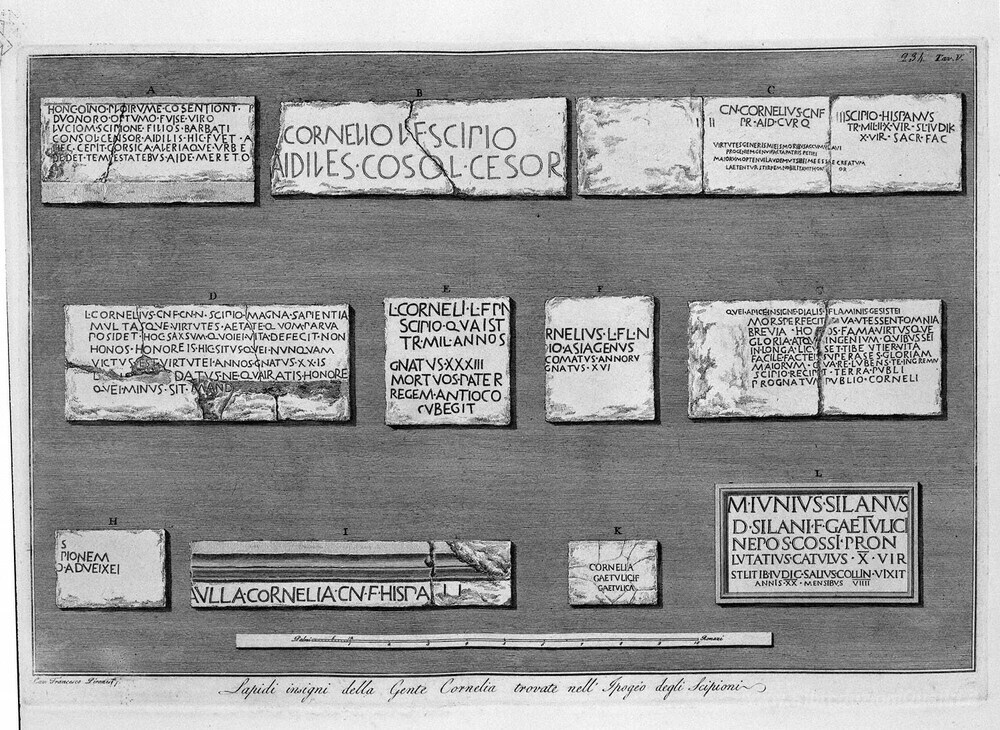 234. Tav. V.
A
HONC·OINO·PLOIRVME·COSENTIONT·R
DVONORO·OPTVMO·FVISE·VIRO
LVCIOM·SCIPIONE·FILIOS·BARBATI
CONSOL·CENSOR·AIDILIS·HIC·FVET·A
HEC·CEPIT·CORSICA·ALERIAQVE·VRBE
DEDET·TEMPESTATEBVS·AIDE·MERETO
B
CORNELIO·L·F·SCIPIO
AIDILES·COSOL·CESOR
C
CN·CORNELIVS·CN·F
PR·AID·CVR·Q
VIRTVTES GENERIS MIEIS MORIBVS ACCVMVLAVI
PROGENIEM GENVI FACTA PATRIS PETIEI
MAIORVM OPTENVI LAVDEM VT SIBEI ME ESSE CREATVM
LAETENTVR STIRPEM NOBILITAVIT HONOR
SCIPIO·HISPANVS
TR·MIL·II·X·VIR·SL·IVDIK
X·VIR·SACR·FAC
D
L·CORNELIVS·CN·F·CN·N·SCIPIO·MAGNA·SAPIENTIA
MVLTASQVE·VIRTVTES·AETATE·QVOM·PARVA
POSIDET·HOC·SAXSVM·QVOIEI·VITA·DEFECIT·NON
HONOS·HONORE·IS·HIC·SITVS·QVEI·NVNQVAM
VICTVS·EST·VIRTVTEI·ANNOS·GNATVS·XX·IS
L DATVS·NE·QVAIRATIS·HONORE
QVEI·MINVS·SIT·MAND
E
L·CORNELI·L·F·P·N
SCIPIO·QVAIST
TR·MIL·ANNOS
GNATVS·XXXIII
MORTVOS·PATER
REGEM·ANTIOCO
SVBEGIT
F
RNELIVS·L·F·L·N
IO·ASIAGENVS
COMATVS·ANNORV
GNATVS·XVI
QVEI·APICE·INSIGNE·DIALIS·FLAMINIS·GESISTEI
MORS·PERFECIT VT·ESSENT·OMNIA
BREVIA·HONOS·FAMA·VIRTVSQVE
GLORIA·ATQVE INGENIVM·QVIBVS·SEI
IN·LONGA·LICV SET·TIBE·VTIER·VITA
FACILE·FACTEI SVPERASES·GLORIAM
MAIORVM·QVARE·LVBENS·TE·IN·GREMIV
SCIPIO·RECIPIT·TERRA·PVBLI
PROGNATVM·PVBLIO·CORNELI
H
S
PIONEM
O·ADVEIXEI
I
AVLLA·CORNELIA·CN·F·HISPALLI
K
CORNELIA
GAETVLICI·F
GAETVLICA
L
M·IVNIVS·SILANVS
D·SILANI·F·GAETVLICI
NEPOS·COSSI·PRON
LVTATIVS·CATVLVS·X·VIR
STLITIB·IVDIC·SALIVS·COLLIN·VIXIT
ANNIS·XX·MENSIBVS VIIII
Palmi Romani
Cav. Francesco Piranesi f.
Lapidi insigni della Gente Cornelia trovate nell' Ipogèo degli Scipioni